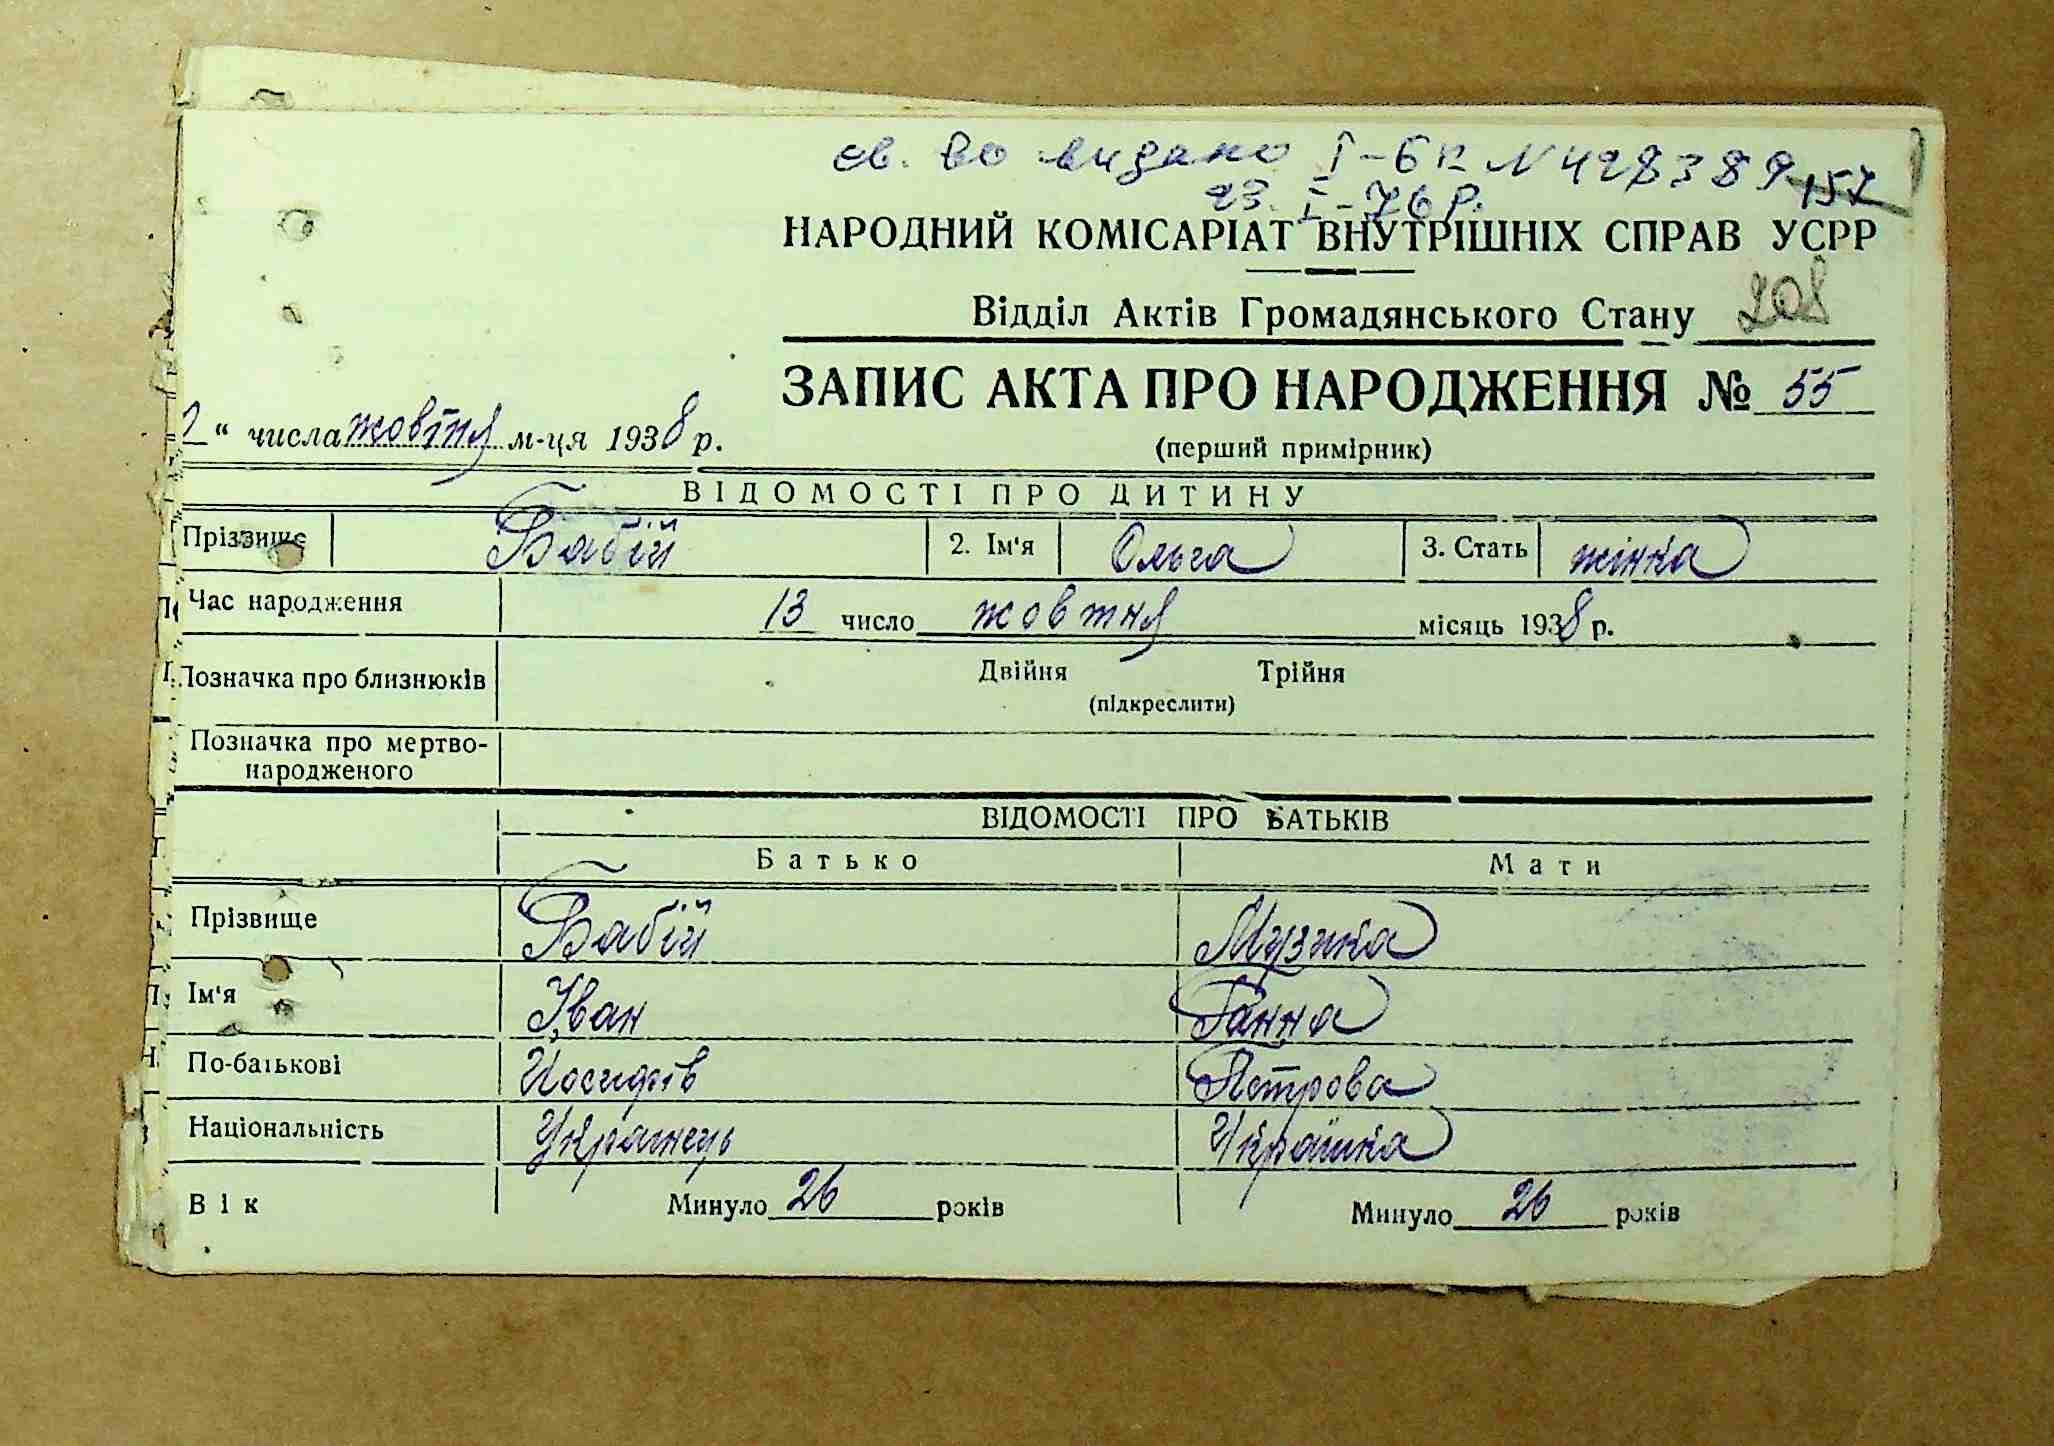 св. во видано I-БК N 428389 157
23. I-76 р.
НАРОДНИЙ КОМІСАРІАТ ВНУТРІШНІХ СПРАВ УСРР
Відділ Актів Громадянського Стану 208
ЗАПИС АКТА ПРО НАРОДЖЕННЯ № 55
(перший примірник)
“ числа жовтня м-ця 1938 р.
ВІДОМОСТІ ПРО ДИТИНУ
Прізвище Бабій 2. Ім'я Ольга 3. Стать жінка
Час народження 13 число жовтня місяць 1938 р.
Позначка про близнюків Двійня Трійня
(підкреслити)
Позначка про мертво-
народженого
ВІДОМОСТІ ПРО БАТЬКІВ
Батько Мати
Прізвище Бабій Музика
Ім'я Іван Ганна
По-батькові Йосипів Петрова
Національність Українець Українка
Вік Минуло 26 років Минуло 26 років